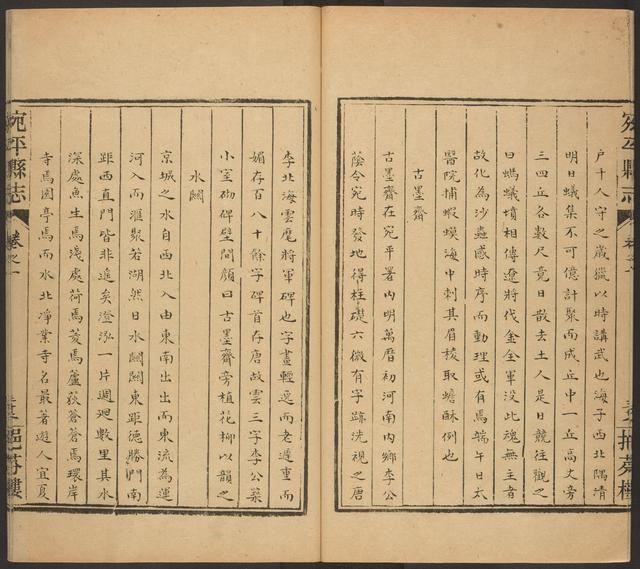 宛平縣志
戶千人守之歲獵以時講武也海子西北隅清
明日蟻集不可億計聚而成丘中一丘高丈旁
三四丘各數尺竟日散去土人是日競往觀之
曰螞蟻墳相傳遼將伐金全軍没此魂無主者
故化為沙蟲感時序而動理或有焉端午日太
醫院捕蝦蟆海中刺其眉稜取蟾酥例也
古墨齋
古墨齋在宛平署内明萬曆初河南内鄉李公
蔭令宛時發地得柱礎六微有字跡洗視之唐
李北海雲麾將軍碑也字畫輕逸而老遒重而
媚存百八十餘字碑首存唐故雲三字李公築
小室砌碑壁間顏曰古墨齋旁植花柳以韻之
水關
京城之水自西北入由東南出出而東流為運
河入而滙聚若湖然曰水關關東距德勝門南
距西直門皆非遙矣澄泓一片週廻數里其水
深處魚生焉淺處荷焉菱焉蘆荻蒼蒼焉環岸
寺焉園亭焉而水北淨業寺名最著遊人宜夏
宛平縣志
卷之一